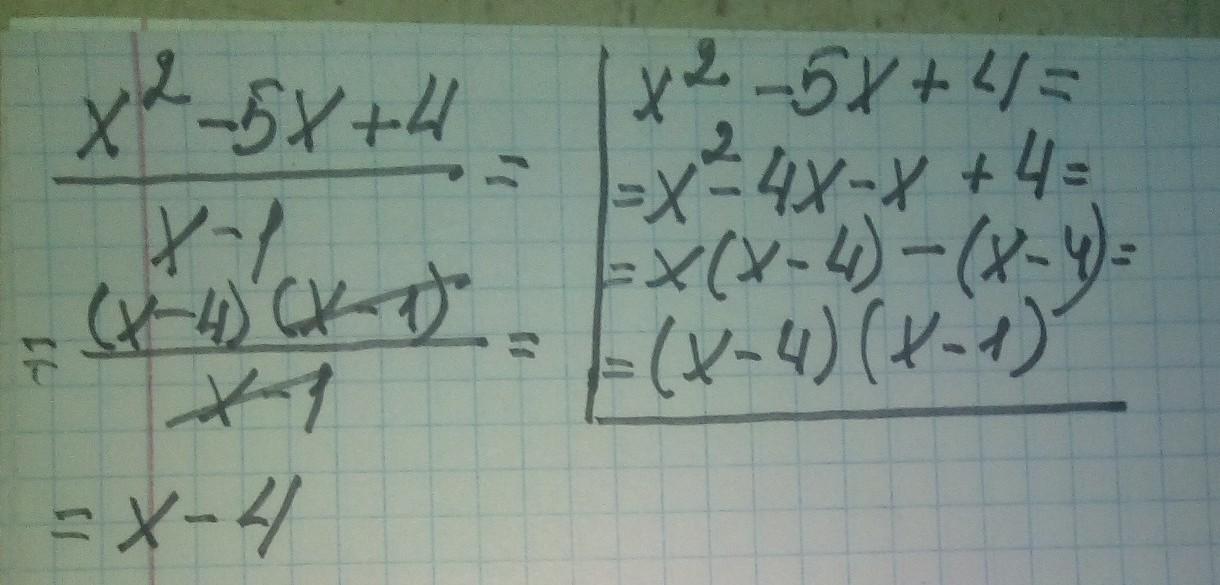 x² - 5x + 4
───────── =
x - 1
= (x - 4) (x - 1)
───────── =
x - 1
= x - 4
x² - 5x + 4 =
= x² - 4x - x + 4 =
= x (x - 4) - (x - 4) =
= (x - 4) (x - 1)